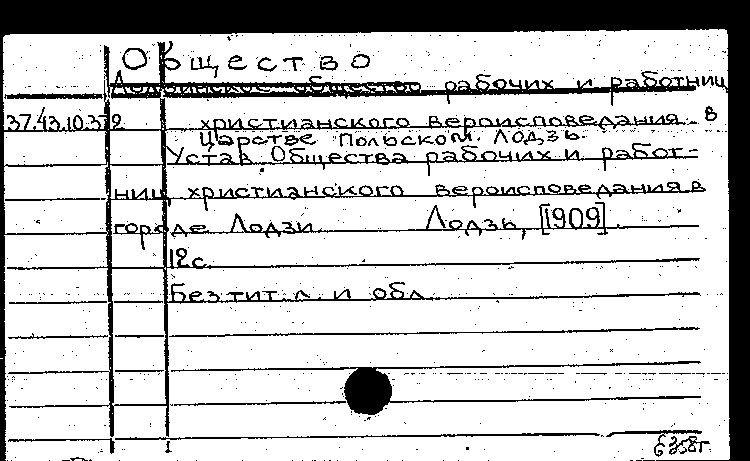 Общество
Лодзинское общество рабочих и работниц
37.43.10.372 христианского вероисповедания в
Царстве Польском. Лодзь.
Устав Общества рабочих и работ-
ниц христианского вероисповедания в
городе Лодзи Лодзь, [1909].
12 с.
Без тит. л. и обл.